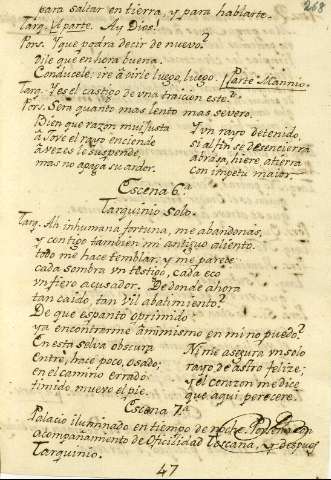 268
para saltar en tierra, y para hablarte.
Tarq. Aparte. Ay Dios!
Pors. Y que podra decir de nuevo?
dile que en hora buena.
Conducele; ire à oirle luego, luego. Parte Mannio.
Tarq. Y es el castigo de vna traicion este?
Pors. Sera quanto mas lento mas severo.
Bien que razon mui justa
à Jove el rayo enciende
à vezes le suspende,
mas no apaga su ardor.
Y vn rayo detenido,
si al fin se desencierra
abrasa, hiere, atierra
con impetu maior.
Escena 6.a
Tarquinio solo.
Tarq. Ah inhumana fortuna, me abandonas,
y contigo tambien mi antiguo aliento.
todo me hace temblar, y me parece
cada sombra vn testigo, cada eco
vn fiero acusador. De donde ahora
tan caido, tan vil abatimiento?
De que espanto oprimido
ya encontrarme à mi mismo en mi no puedo?
En esta selva obscura
Entrè, hace poco, osado;
en el camino errado
timido muevo el pie.
Ni me asegura vn solo
rayo de astro felize;
y el corazon me dice
que aqui perecere.
Escena 7.a
Palacio iluminado en tiempo de noche. Porsena con
acompañamiento de Oficilidad Toscana, y despues
Tarquinio.
47